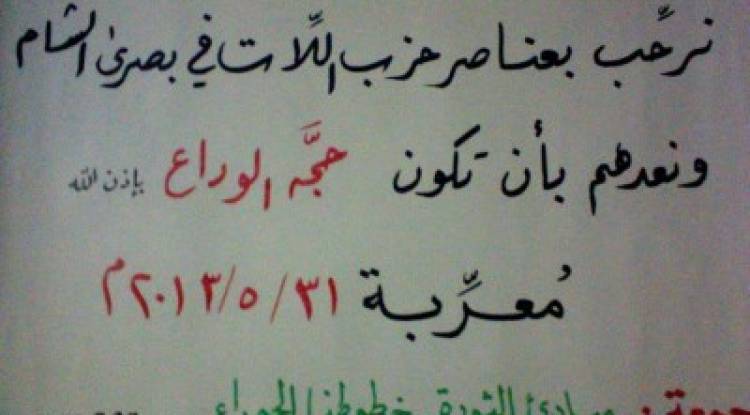 نرحِّب بعناصر حزب اللَّات في بصرى الشام
ونعدهم بأن تكون حجَّه الوداع بإذن الله
مُعرِّبة ٣١/٥/٢٠١٣م
جمعة: مبادئ الثورة خطوطنا الحمراء